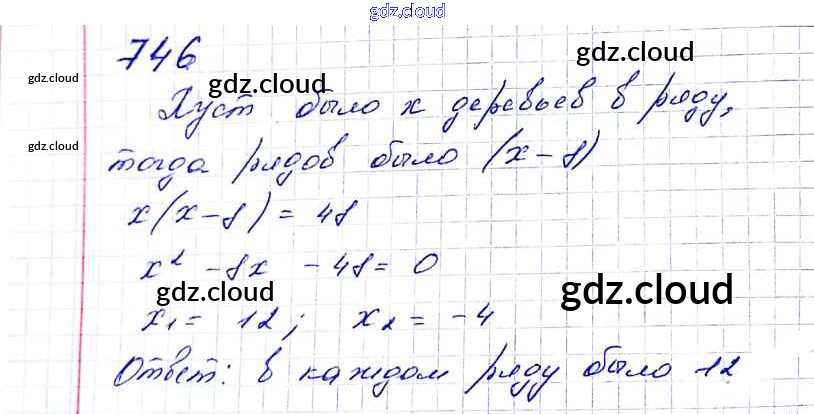 gdz.cloud
746
gdz.cloud
gdz.cloud
gdz.cloud
Пуст было x деревьев в ряду,
gdz.cloud
тогда рядов было (x-8)
x(x-8) = 48
x² - 8x - 48 = 0
gdz.cloud
gdz.cloud
x₁ = 12; x₂ = -4
Ответ: в каждом ряду было 12